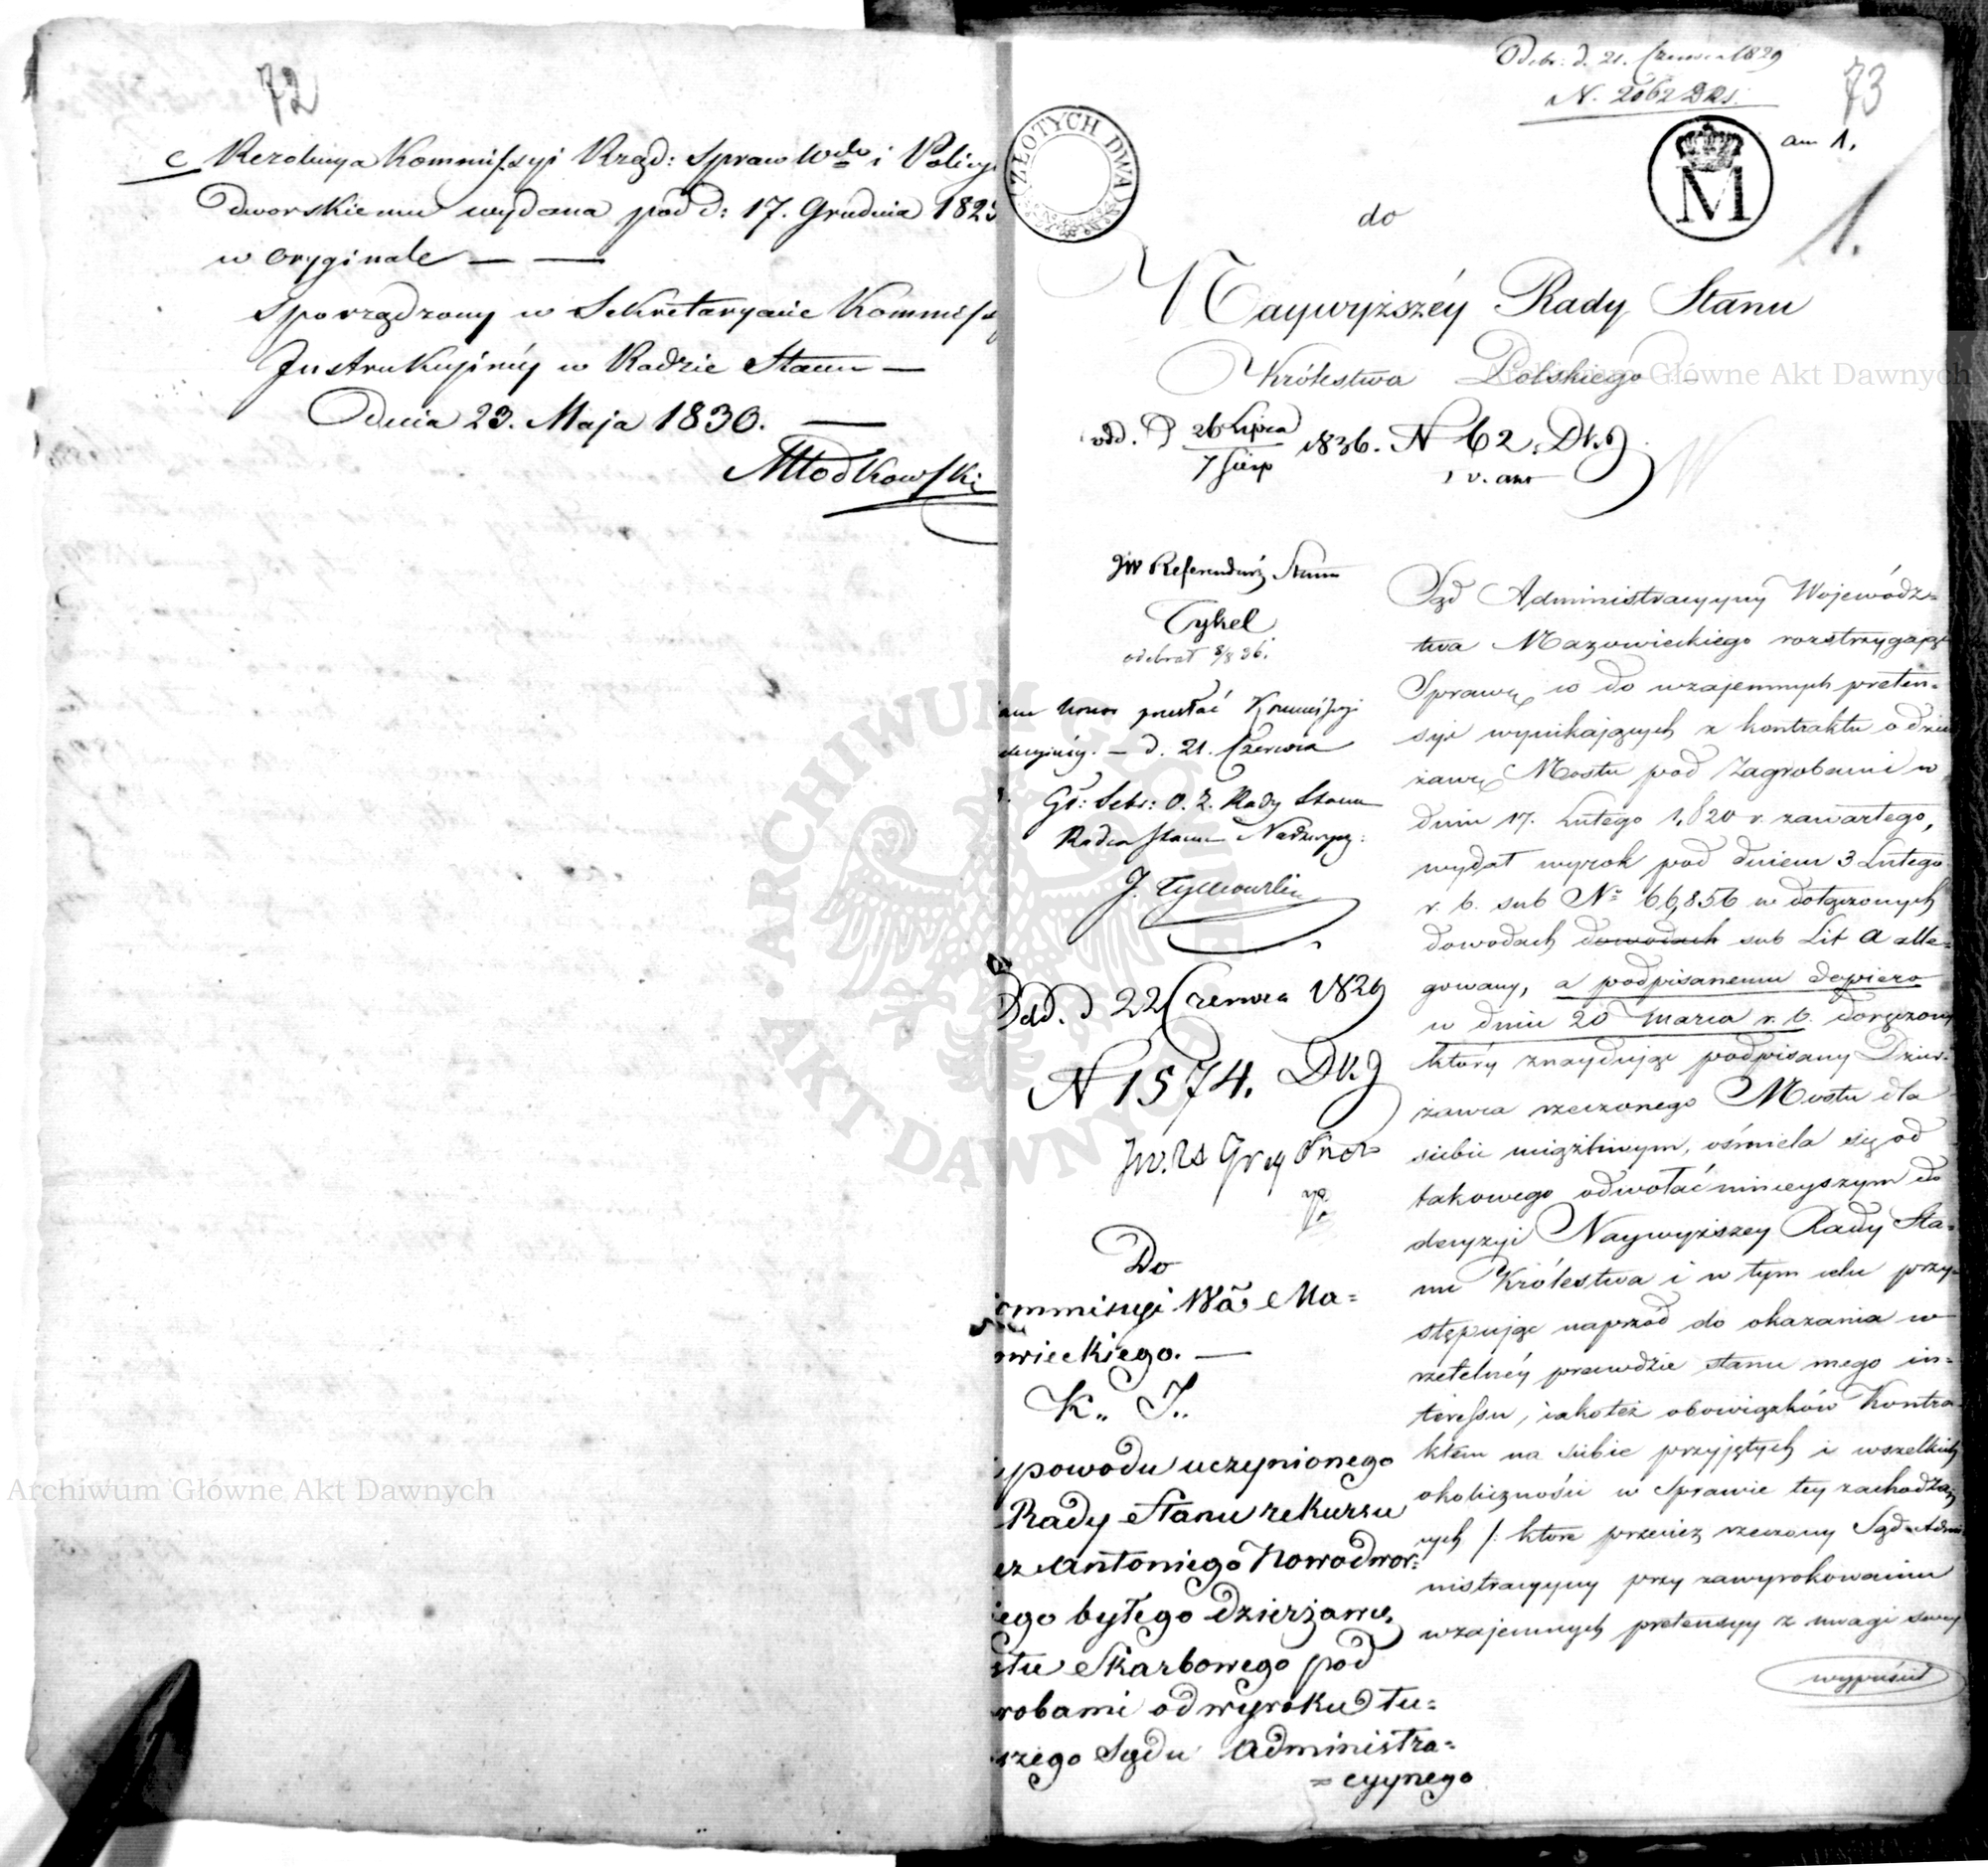 72
c Rezolucya Kommissyi Rząd: Spraw Wch i Policyi
dworskiemu wydana pod d: 17. Grudnia 182
w oryginale — —
Sporządzony w Sekretaryacie Kommiss
Instrukcyinéy w Radzie Stanu —
Dnia 23. Maja 1830. —
Młodkowski
Odebr: d. 21. Czerwca 1829
N. 2062
73
ZŁOTYCH DWA
M
ann 1.
1.
do
Naywyższéy Rady Stanu
Królestwa Polskiego
odd. d 26 Lipca
7 Sierp 1836. N 62.
JW Referendarz Stanu
Tykel
odebrał 8/8 36.
am honor przesłać Kommissyi
d. 21. Czerwca
Gł: Sekr: O. Z. Rady Stanu
Radca Stanu Nadzwycz:
J. Tymowski
Odd. d 22 Czerwca 1829
N 1574.
Do
ommissyi Wa Ma=
owieckiego. —
K.. I..
powodu uczynionego
Rady Stanu rekursu
ez Antoniego Nowodwor=
iego byłego dzierżawcę
stu Skarbowego pod
robami od wyroku tu=
szego Sądu Administra=
= cyynego
Sąd Administracyyny Wojewódz=
twa Mazowieckiego rozstrzygając
Sprawę co do wzajemnych preten=
syi wynikających z kontraktu o dzier
żawę Mostu pod Zagrobami w
dniu 17. Lutego 1,820 r. zawartego,
wydał wyrok pod dniem 3 Lutego
r. b. sub No 66,856 w dołączonych
dowodach dowodach sub Lit a alle=
gowany, a podpisanemu dopiero
w dniu 20 Marca r. b. doręczony
który znayduiąc podpisany Dzier=
żawca rzeczonego Mostu dla
siebie uciążliwym, ośmiela się od
takowego odwołać ninieyszym do
decyzyi Naywyższey Rady Sta=
nu Królestwa i w tym celu przy=
stępując naprzód do okazania w
rzetelnéy prawdzie stanu mego in=
teressu, iako też obowiązków Kontra=
ktem na siebie przyjętych i wszelkich
okoliczności w Sprawie tey zachodzą
cych /: które przecież rzeczony Sąd Admi
nistracyyny przy zawyrokowaniu
wzajemnych pretensyy z uwagi swey
wypuścił
Archiwum Główne Akt Dawnych
Archiwum Główne Akt Dawnych
ARCHIWUM GŁÓWNE AKT DAWNYCH